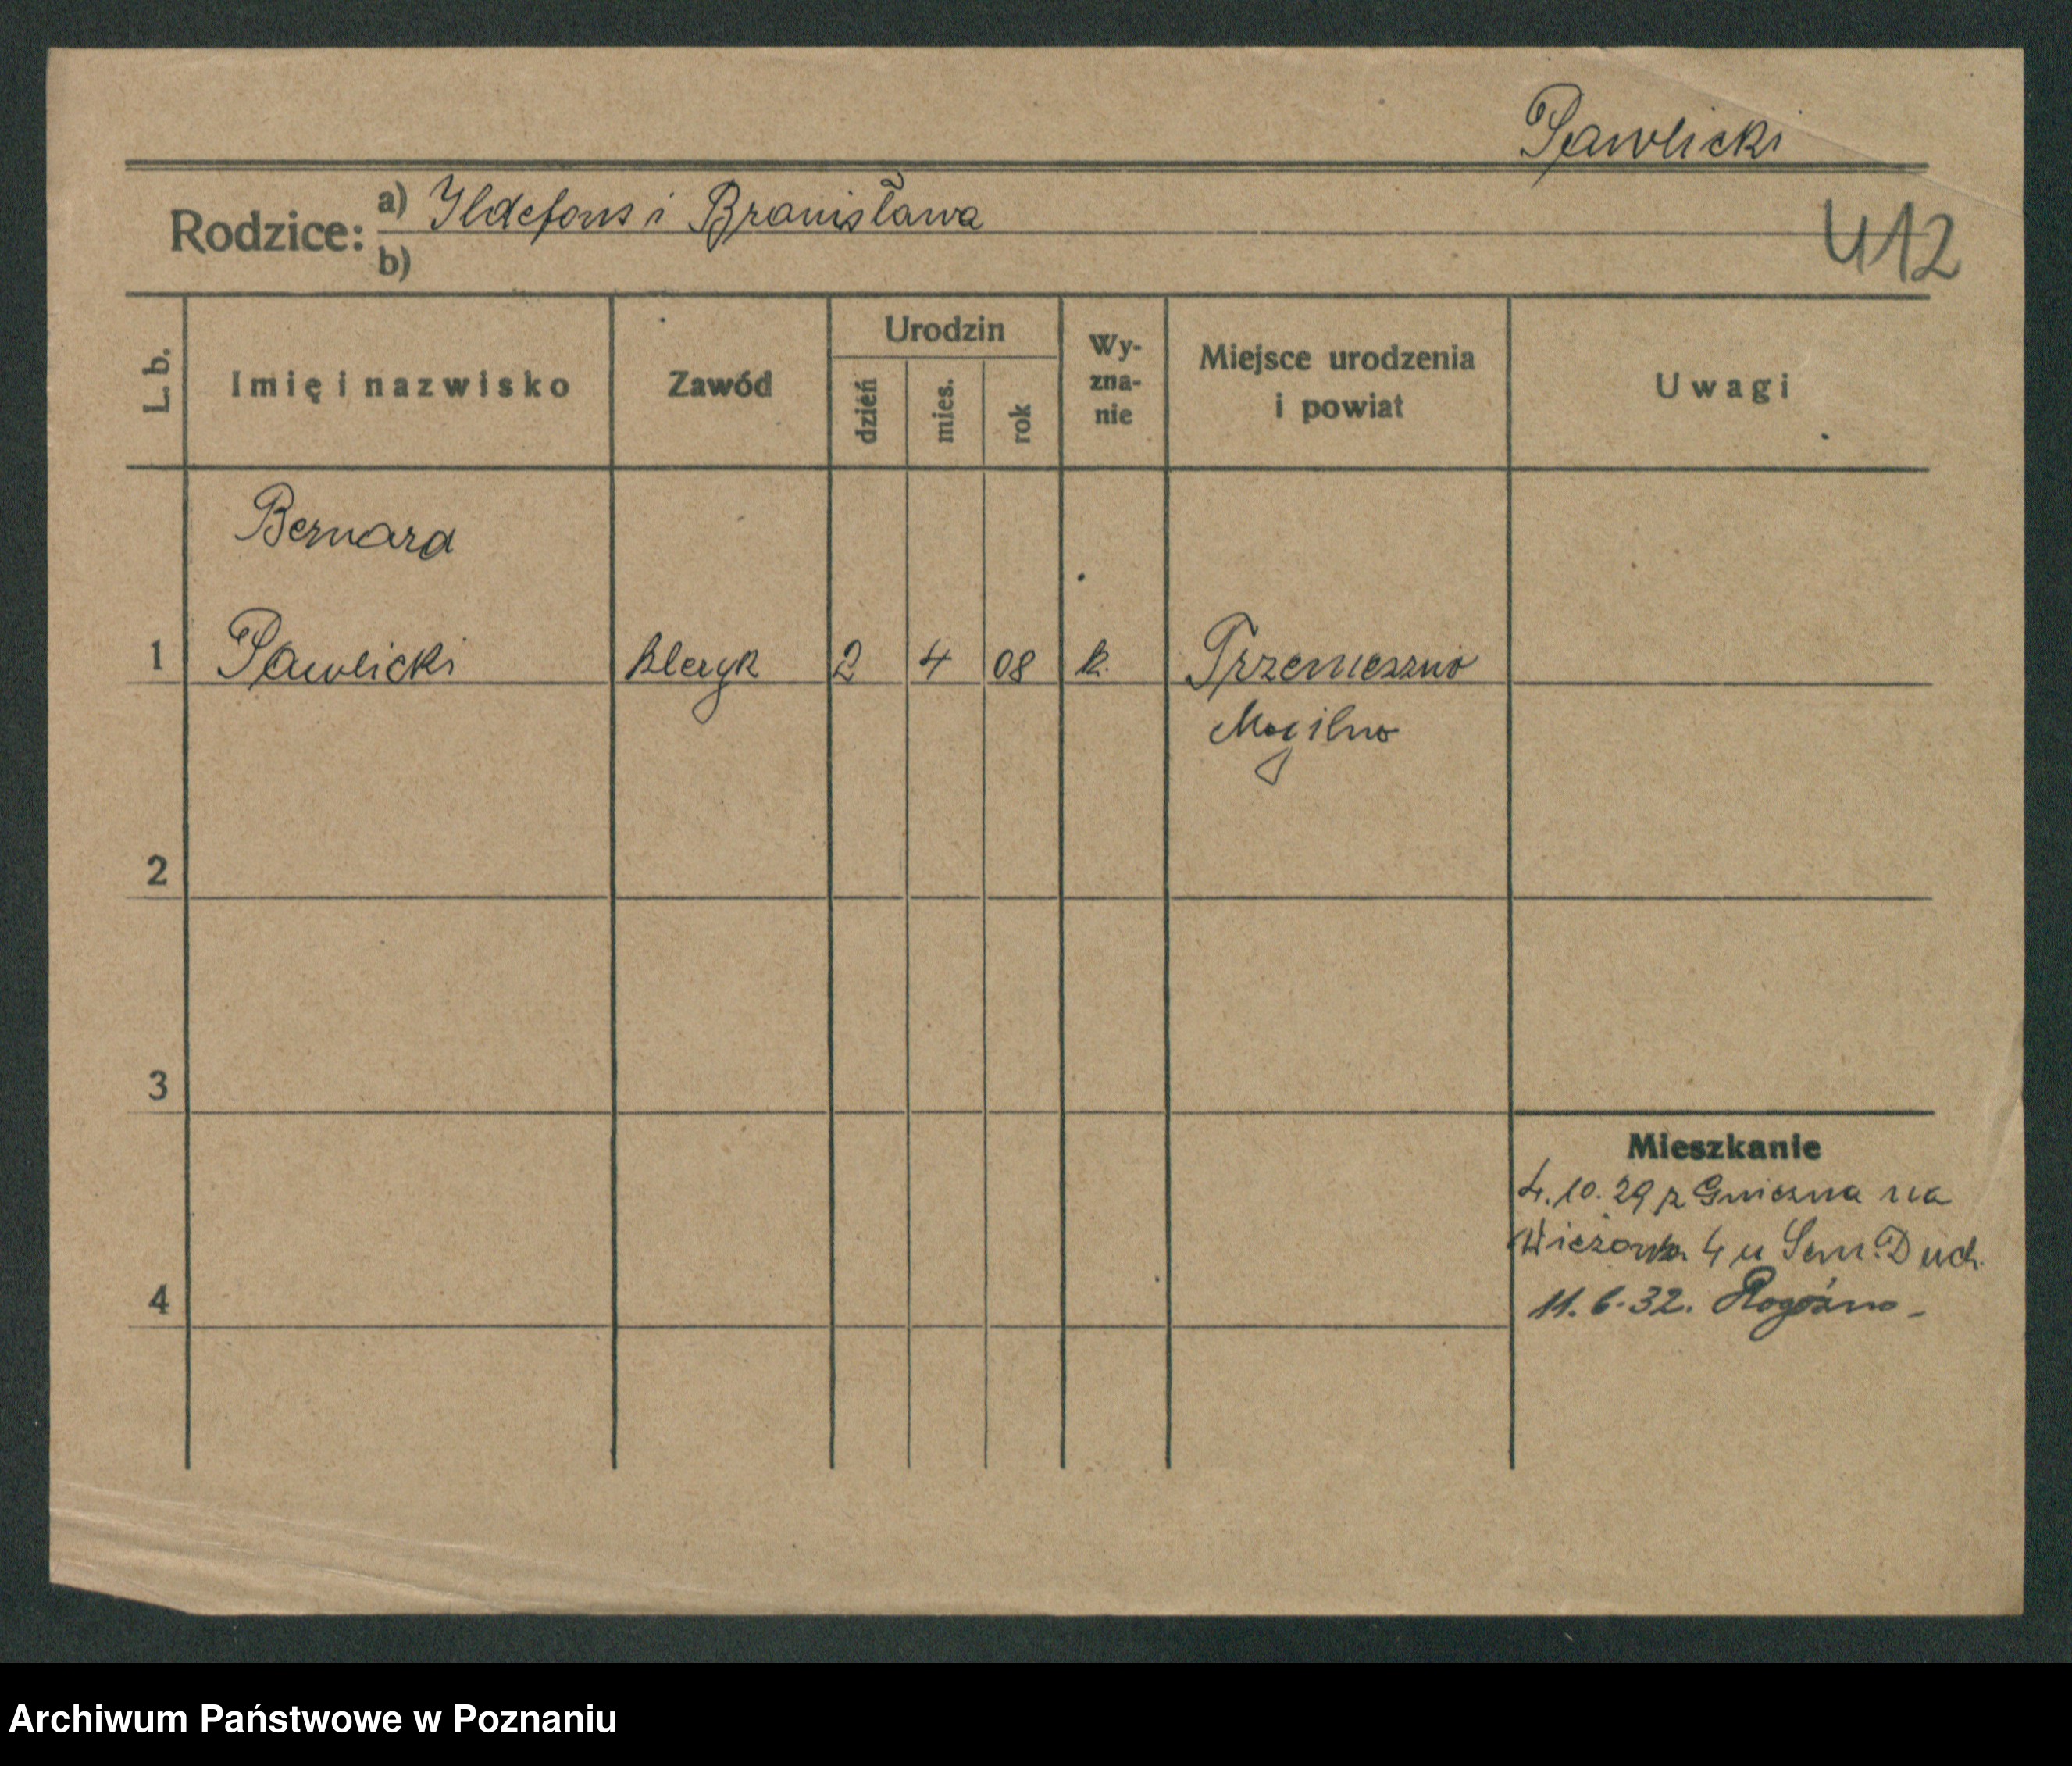 Pawlicki
Rodzice: a) Ildefons i Bronisława
b)
412
L. b.
Imię i nazwisko
Zawód
Urodzin
dzień
mies.
rok
Wy-
zna-
nie
Miejsce urodzenia
i powiat
Uwagi
Bernard
1 Pawlicki kleryk 2 4 08 k. Trzemeszno
Mogilno
2
3
4
Mieszkanie
4.10.29 z Gniezna na
Wieżowa 4 u Sem. Duch.
11.6.32. Rogoźno -
Archiwum Państwowe w Poznaniu